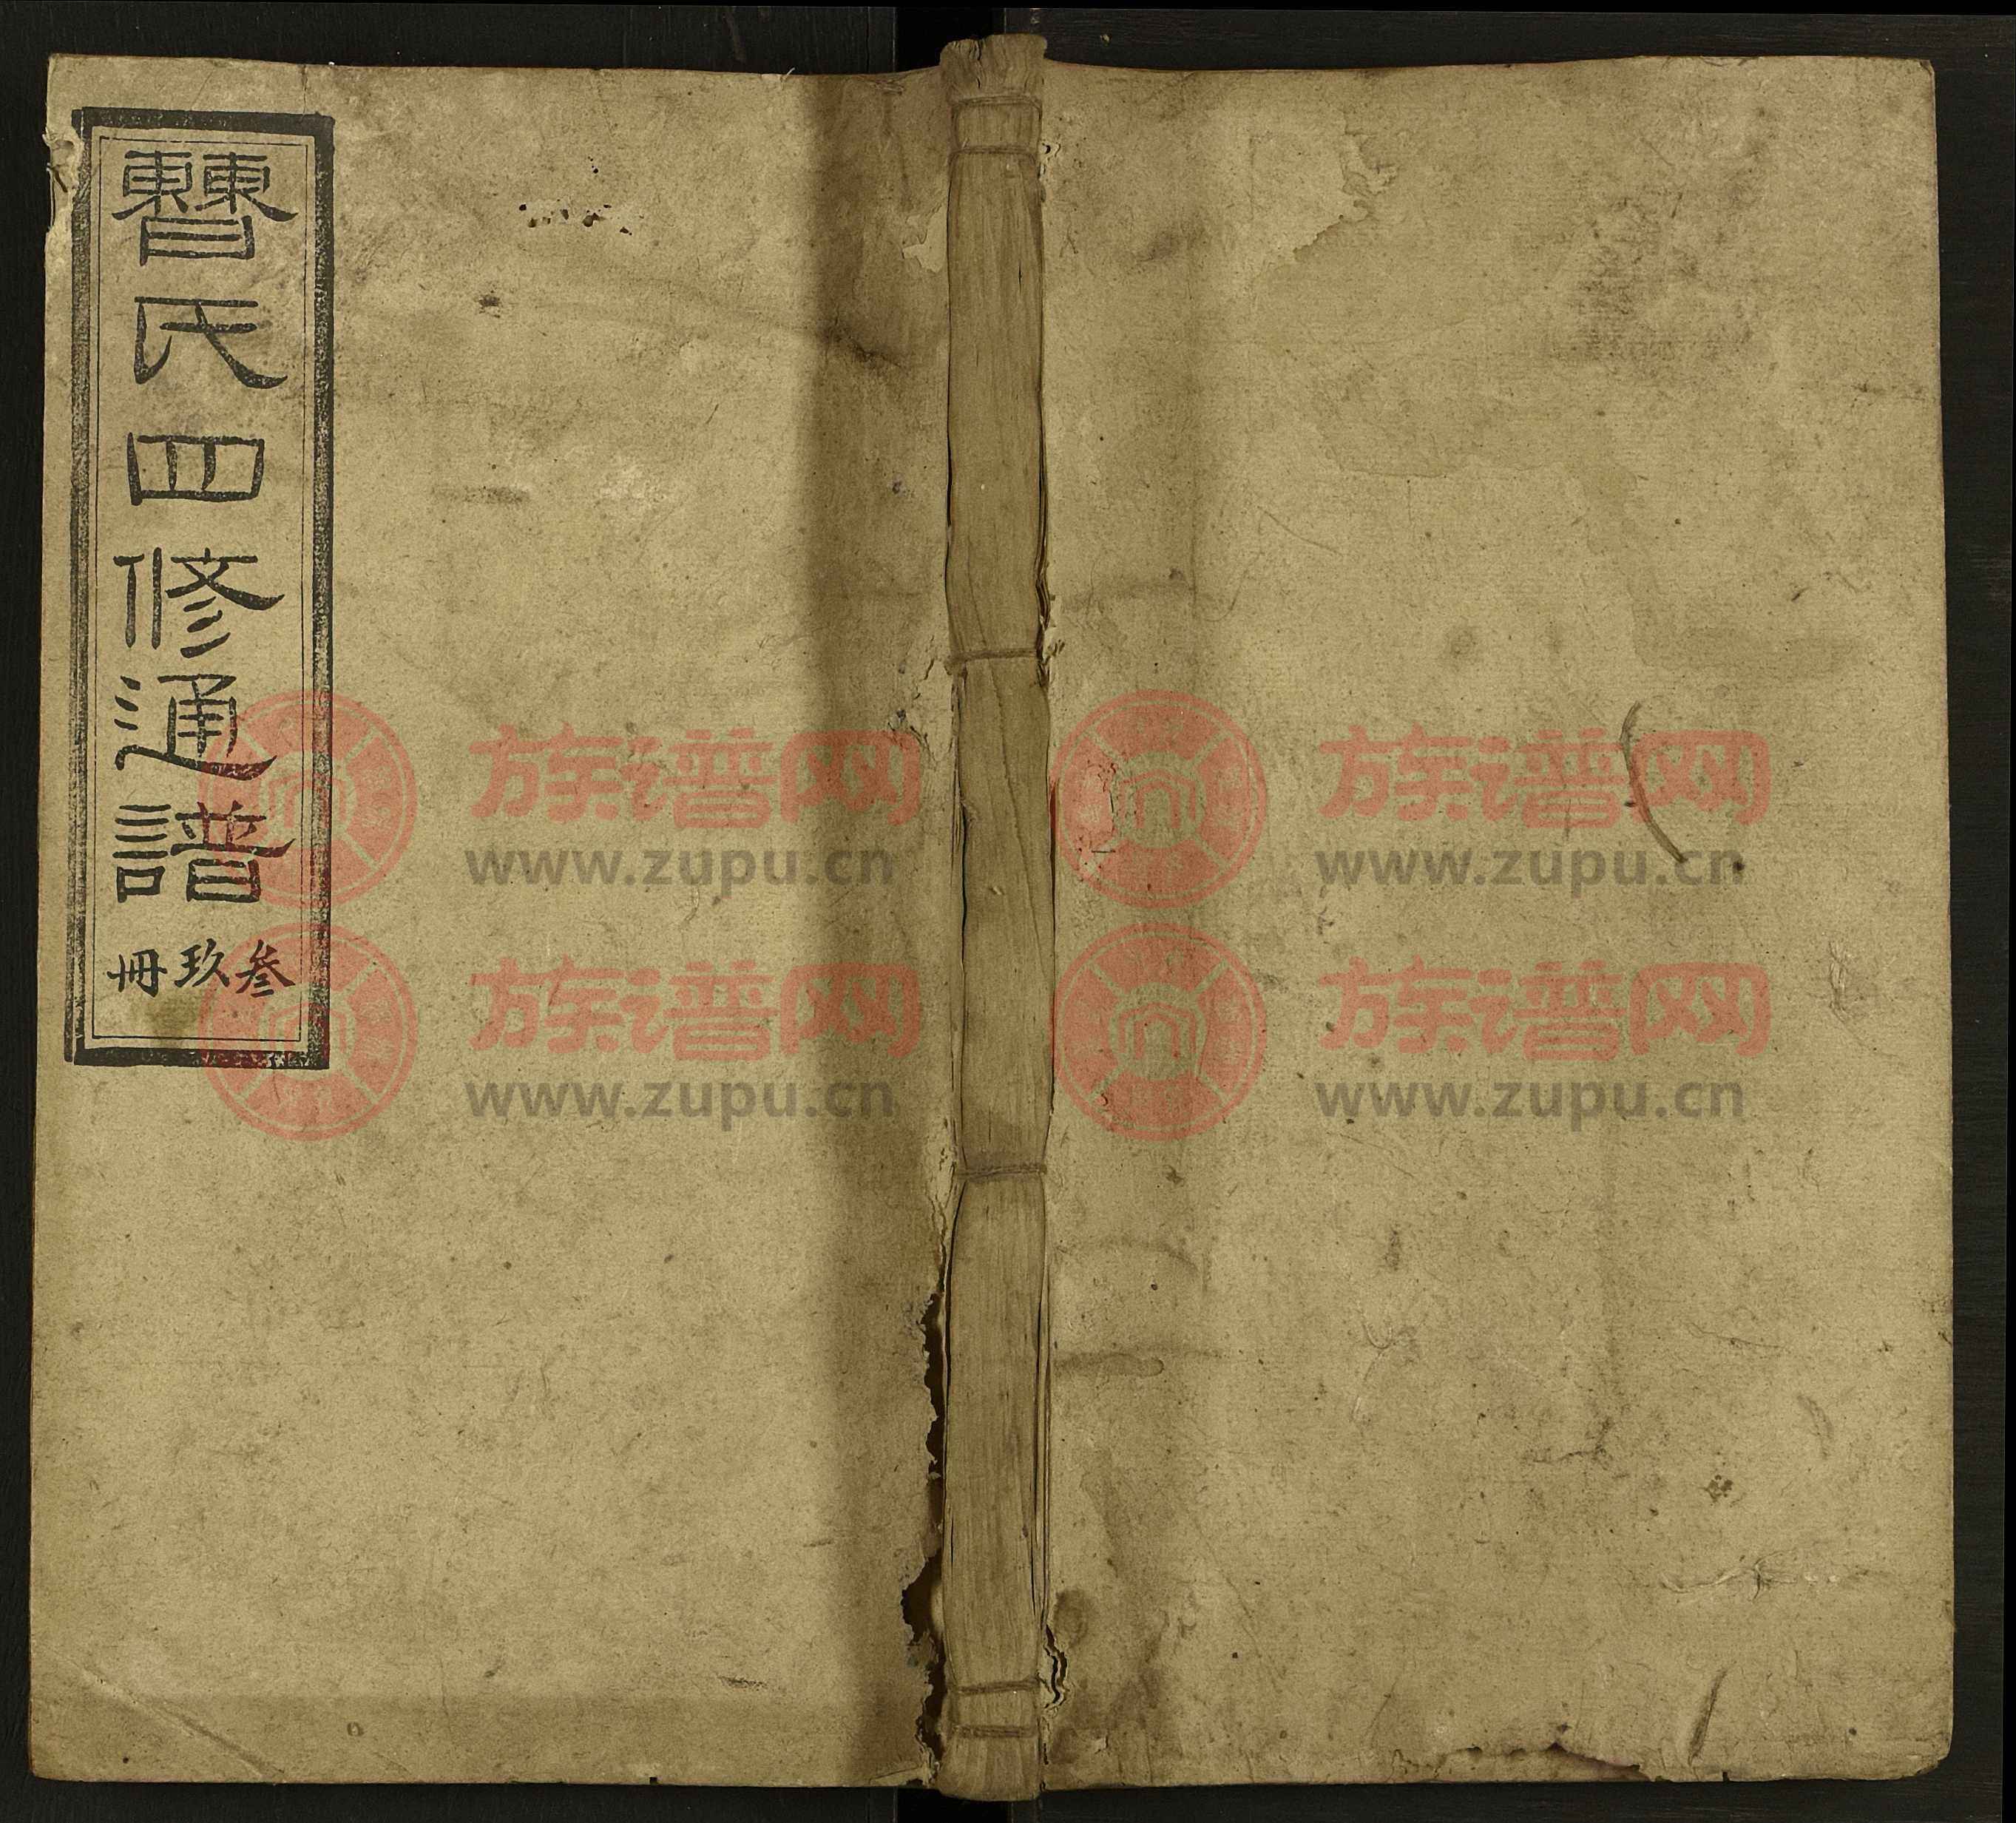 曹氏四修通譜
叁玖冊
族谱网
www.zupu.cn
族谱网
www.zupu.cn
族谱网
www.zupu.cn
族谱网
www.zupu.cn